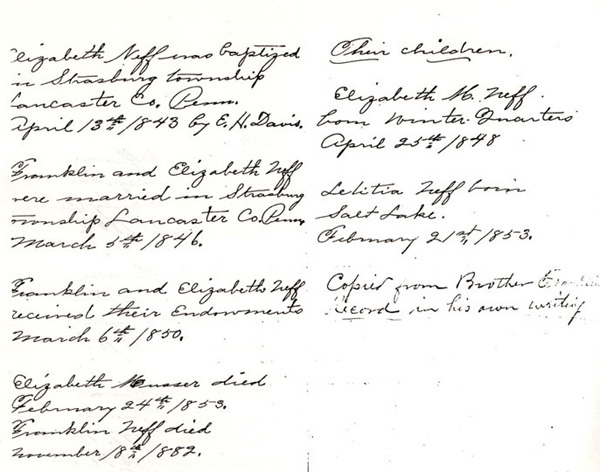 Elizabeth Neff was baptized
in Strasburg township
Lancaster Co. Penn.
April 13th 1843 by E. H. Davis.
Franklin and Elizabeth Neff
were married in Strasburg
township Lancaster Co. Penn.
March 5th 1846.
Franklin and Elizabeth Neff
received their Endowments
March 6th 1850.
Elizabeth Musser died
February 24th 1853.
Franklin Neff died
November 18th 1882.
Their children.
Elizabeth M. Neff
born Winter Quarters
April 25th 1848
Letitia Neff born
Salt Lake.
February 21st, 1853.
Copied from Brother
record in his own writing